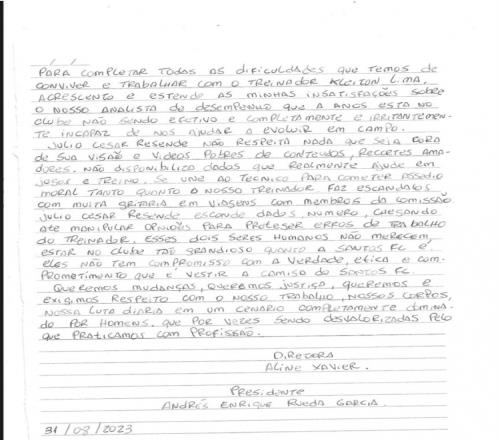 PARA COMPLETAR TODAS AS DIFICULDADES QUE TEMOS DE
CONVIVER E TRABALHAR COM O TREINADOR KLEITON LIMA.
ACRESCENTO E ESTENDE AS MINHAS INSATISFAÇÕES SOBRE
O NOSSO ANALISTA DE DESEMPENHO QUE A ANOS ESTA NO
CLUBE NÃO SENDO EFETIVO E COMPLETAMENTE E IRRITANTEMEN-
TE INCAPAZ DE NOS AJUDAR A EVOLUIR EM CAMPO.
JULIO CESAR RESENDE NÃO RESPEITA NADA QUE SEJA FORA
DE SUA VISÃO E VIDEOS POBRES DE CONTEUDOS, RECORTES AMA-
DORES. NÃO DISPONIBILIZA DADOS QUE REALMENTE AJUDE EM
JOGOS E TREINO. SE UNE AO TECNICO PARA COMETER ASSÉDIO
MORAL TANTO QUANTO O NOSSO TREINADOR FAZ ESCANDALOS
COM MUITA GRITARIA EM VIAGENS COM MEMBROS DA COMISSÃO
JULIO CESAR RESENDE ESCONDE DADOS, NUMERO, CHEGANDO
ATE MANIPULAR OPINIÕES PARA PROTEGER ERROS DE TRABALHO
DO TREINADOR. ESSES DOIS SERES HUMANOS NÃO MERECEM
ESTAR NO CLUBE TÃO GRANDIOSO QUANTO A SANTOS FC E
ELES NÃO TEM COMPROMISSO COM A VERDADE, ETICA E COM-
PROMETIMENTO QUE É VESTIR A CAMISA DO SANTOS FC.
QUEREMOS MUDANÇAS, QUEREMOS JUSTIÇA, QUEREMOS E
EXIGIMOS RESPEITO COM O NOSSO TRABALHO, NOSSOS CORPOS,
NOSSA LUTA DIARIA EM UM CENARIO COMPLETAMENTE DOMINA-
DO POR HOMENS. QUE POR VEZES SENDO DESVALORIZADAS PELO
QUE PRATICAMOS COM PROFISSÃO.
DIRETORA
ALINE XAVIER.
PRESIDENTE
ANDRÉS ENRIQUE RUEDA GARCIA.
31/08/2023